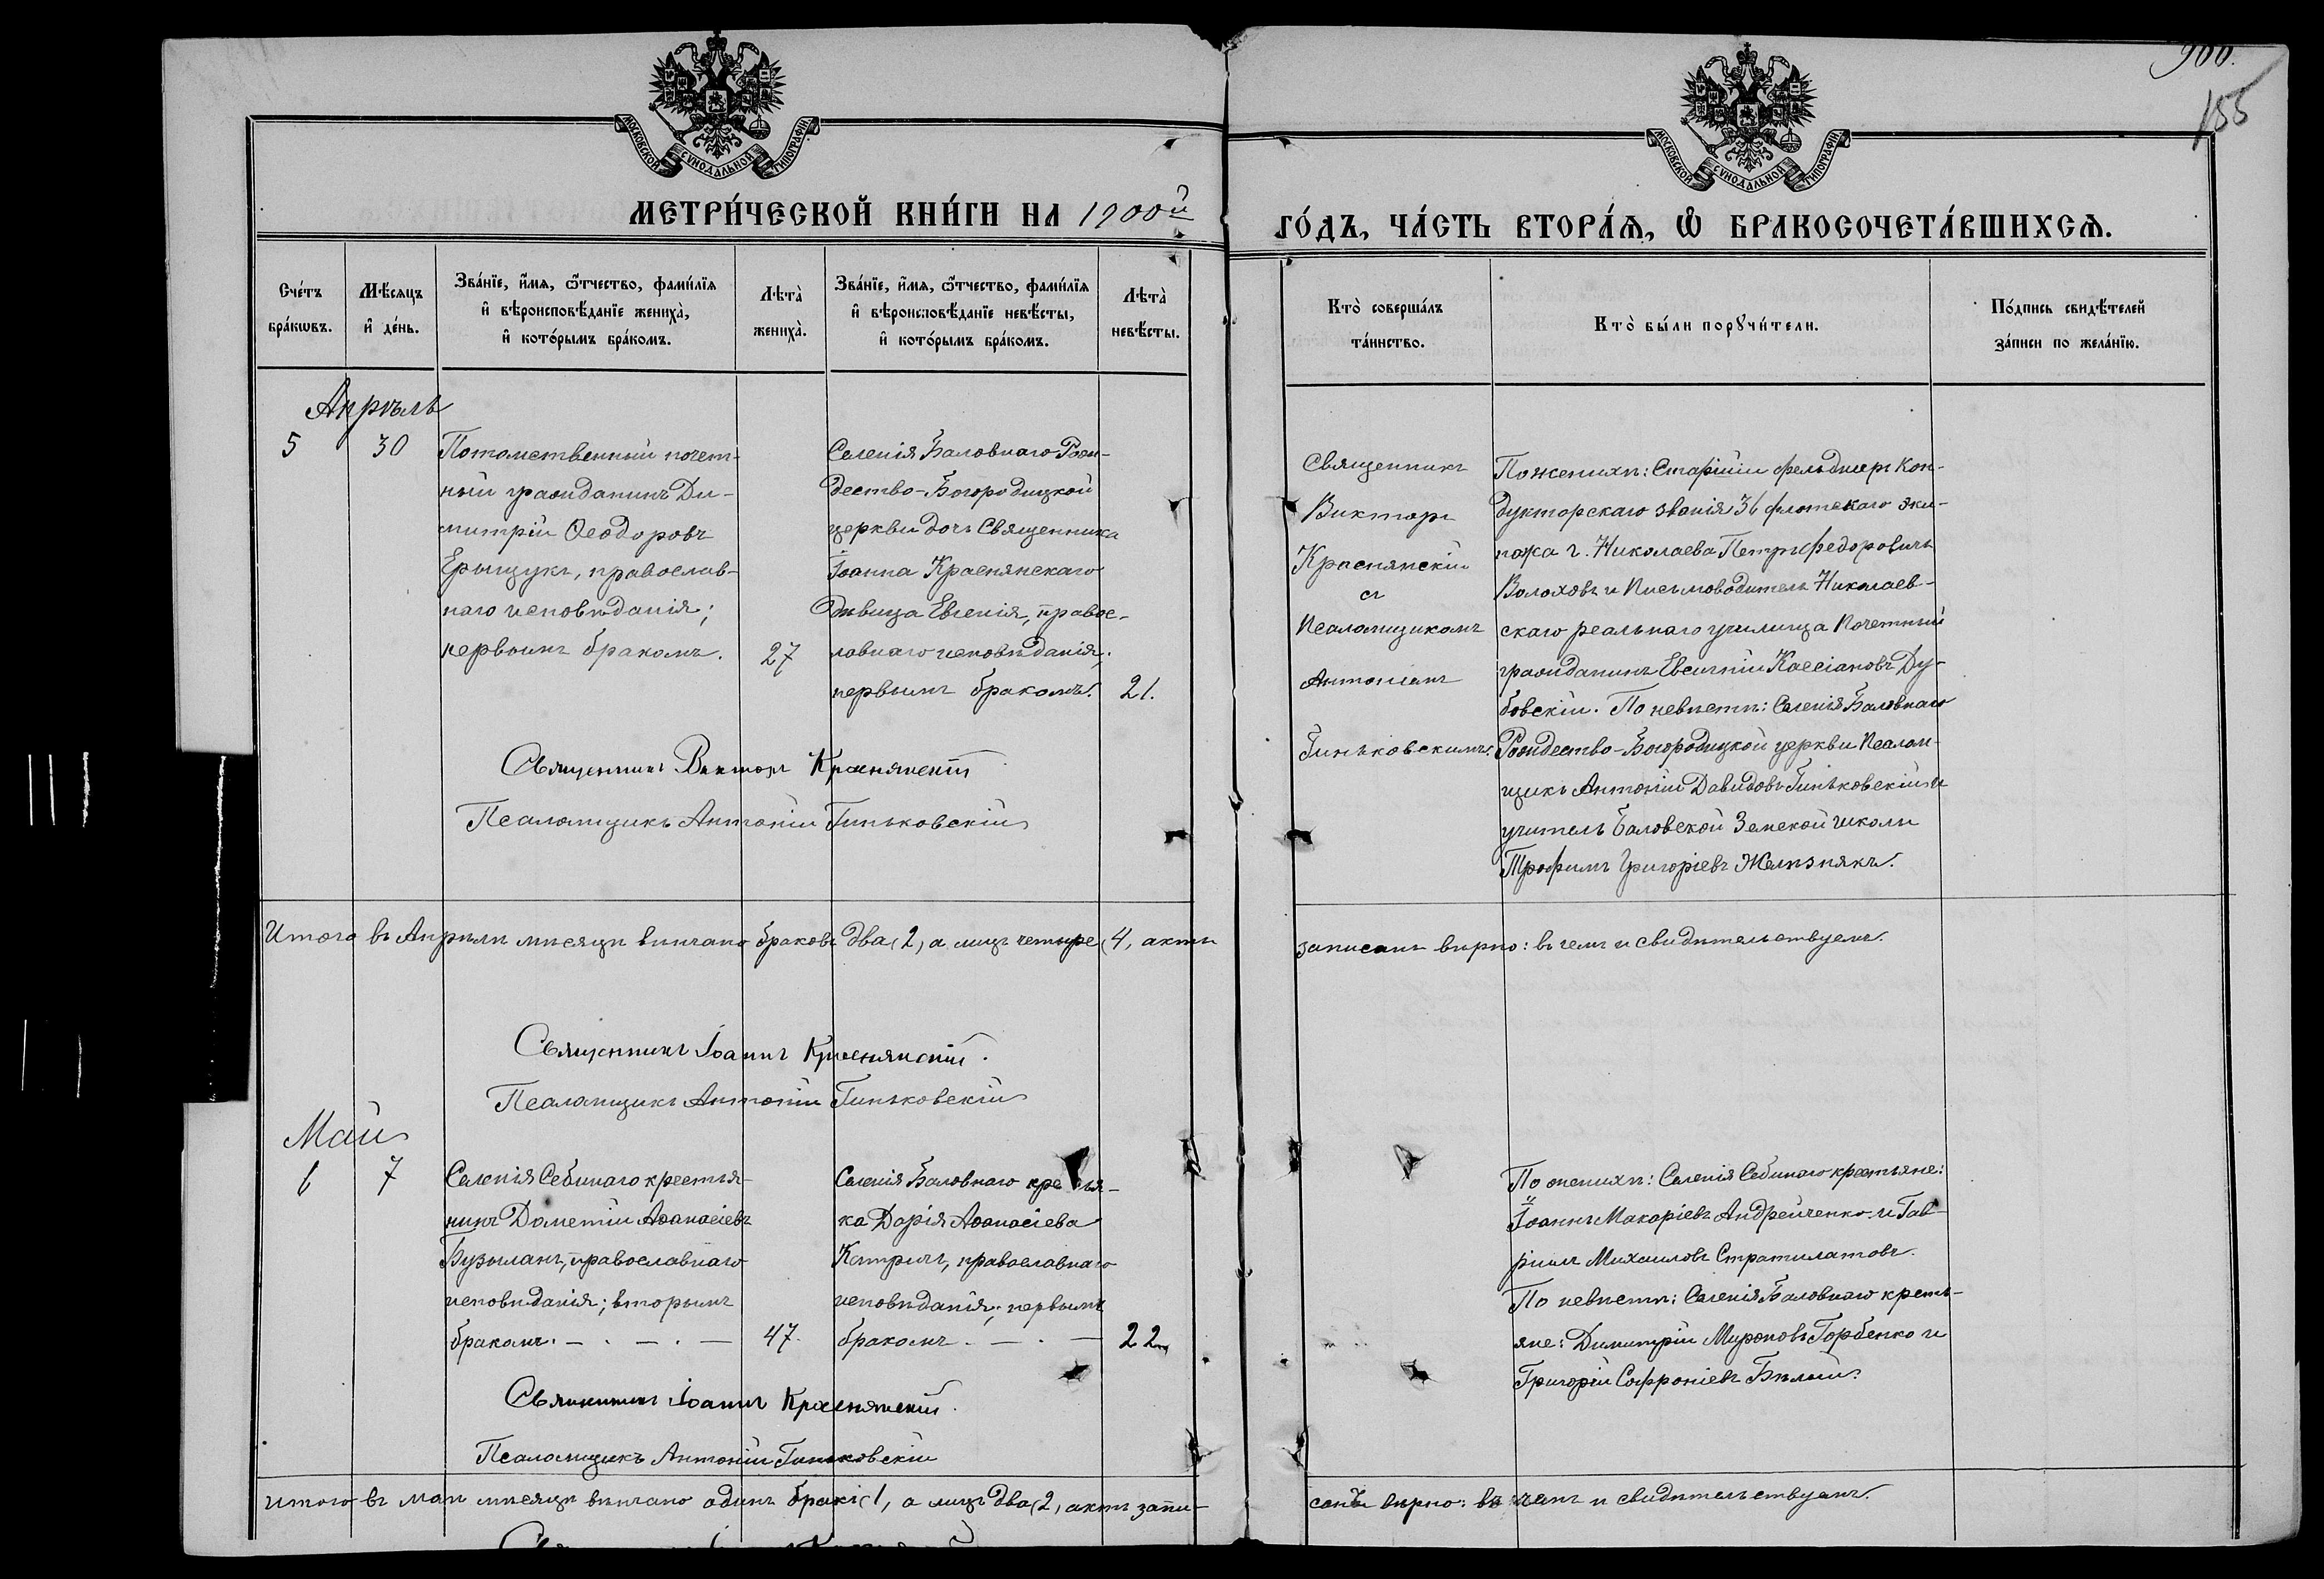 900.
155
МОСКОВСКОЙ СУНОДАЛЬНОЙ ТИПОГРАФІИ
МОСКОВСКОЙ СУНОДАЛЬНОЙ ТИПОГРАФІИ
МЕТРИ́ЧЕСКОЙ КНИ́ГИ НА 1900й
ГО́ДЪ, ЧА́СТЬ ВТОРА́Ѧ, Ѡ҆ БРАКОСОЧЕТА́ВШИХСѦ.
Сче́тъ
бра́кѡвъ.
Мѣ́сяцъ
и҆ де́нь.
Зва́нїе, и҆́мя, ѻ҆́тчество, фами́лїя
и҆ вѣроисповѣ́данїе жениха̀,
и҆ кото́рымъ бра́комъ.
Лѣта̀
жениха̀.
Зва́нїе, и҆́мя, ѻ҆́тчество, фами́лїя
и҆ вѣроисповѣ́данїе невѣ́сты,
и҆ кото́рымъ бра́комъ.
Лѣта̀
невѣ́сты.
Кто̀ соверша́лъ
та́инство.
Кто̀ бы́ли порꙋчи́тели.
По́дпись свидѣ́телей
за́писи по жела́нїю.
Апрѣль
5
30
Потомственный почет-
ный гражданинъ Ди-
митрій Ѳеодоровъ
Ерыщукъ, православ-
наго исповѣданія;
первымъ бракомъ.
27
Селенія Баловнаго Рож-
дество-Богородицкой
церкви дочь Священника
Іоанна Краснянскаго
дѣвица Евгенія, правос-
лавнаго исповѣданія;
первымъ бракомъ.
21.
Священникъ
Викторъ
Краснянскій
съ
Псаломщикомъ
Антоніемъ
Гиньковскимъ.
По женихѣ: Старшій фельдшеръ Кон-
дукторскаго званія 36 флотскаго эки-
пажа г. Николаева Петръ Федоровичъ
Волоховъ и Письмоводитель Николаев-
скаго реальнаго училища Почетный
гражданинъ Евсигній Кассіановъ Ду-
бовскій. По невѣстѣ: Селенія Баловнаго
Рождество-Богородицкой церкви Псалом-
щикъ Антоній Давидовъ Гиньковскій и
учитель Баловской Земской школы
Трофимъ Григоріевъ Желѣзнякъ.
Священникъ Викторъ Краснянскій
Псаломщикъ Антоній Гиньковскій
Итого въ Апрѣлѣ мѣсяцѣ вѣнчано браковъ два (2, а лицъ четыре (4, акты
записаны вѣрно: въ чемъ и свидѣтельствуемъ.
Священникъ Іоаннъ Краснянскій.
Псаломщикъ Антоній Гиньковскій
Май
6
7
Селенія Себинаго крестья-
нинъ Дометій Аѳанасіевъ
Бузыланъ, православнаго
исповѣданія; вторымъ
бракомъ. — . — . —
47.
Селенія Баловнаго кре ья-
ка Дарія Аѳанасіева
православнаго
исповѣданія; первымъ
бракомъ. — . —
22
По женихѣ: Селенія Себинаго крестьяне:
Іоаннъ Макаріевъ Андрейченко и Гав-
риилъ Михаиловъ Стратилатовъ.
По невѣстѣ: Селенія Баловнаго кресть-
яне: Димитрій Мироновъ Горбенко и
Григорій Софроніевъ Бѣлый.
Священникъ Іоаннъ Краснянскій.
Псаломщикъ Антоній Гиньковскій
Итого въ маѣ мѣсяцѣ вѣнчано одинъ бракъ (1, а лицъ два (2, актъ запи-
санъ вѣрно: въ чемъ и свидѣтельствуемъ.